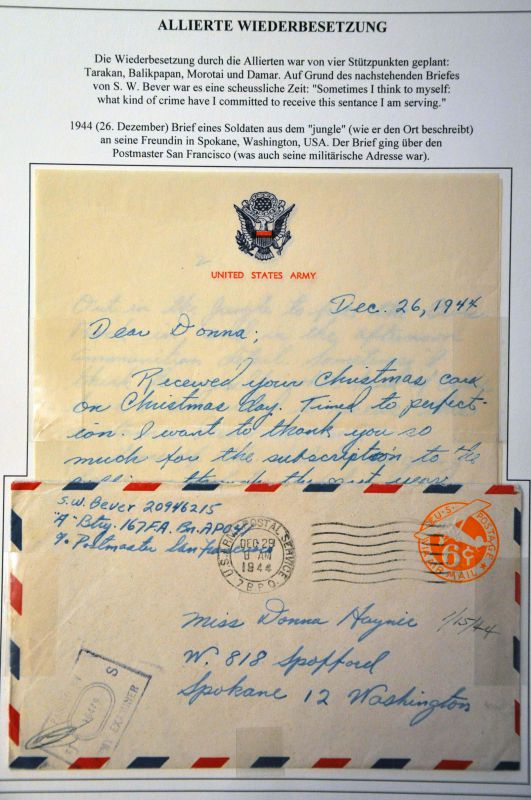 ALLIIERTE WIEDERBESETZUNG
Die Wiederbesetzung durch die Allierten war von vier Stützpunkten geplant:
Tarakan, Balikpapan, Morotai und Damar. Auf Grund des nachstehenden Briefes
von S. W. Bever war es eine scheussliche Zeit: "Sometimes I think to myself:
what kind of crime have I committed to receive this sentance I am serving."
1944 (26. Dezember) Brief eines Soldaten aus dem "jungle" (wie er den Ort beschreibt)
an seine Freundin in Spokane, Washington, USA. Der Brief ging über den
Postmaster San Francisco (was auch seine militärische Adresse war).
UNITED STATES ARMY
Dec. 26, 1944
Dear Donna;
Received your Christmas card
on Christmas day. Timed to perfect-
ion. I want to thank you so
much for the subscription to the
S.W. Bever 20946215
"A" Btry. 167 F.A. Bn. APO 41
% Postmaster San Francisco
U.S. ARMY POSTAL SERVICE
DEC 29
8 AM
1944
A.P.O.
U.S. POSTAGE
6¢
VIA AIR MAIL
Miss Donna Haynie
1/15/44
W. 818 Spofford
Spokane 12 Washington
EXAMINER